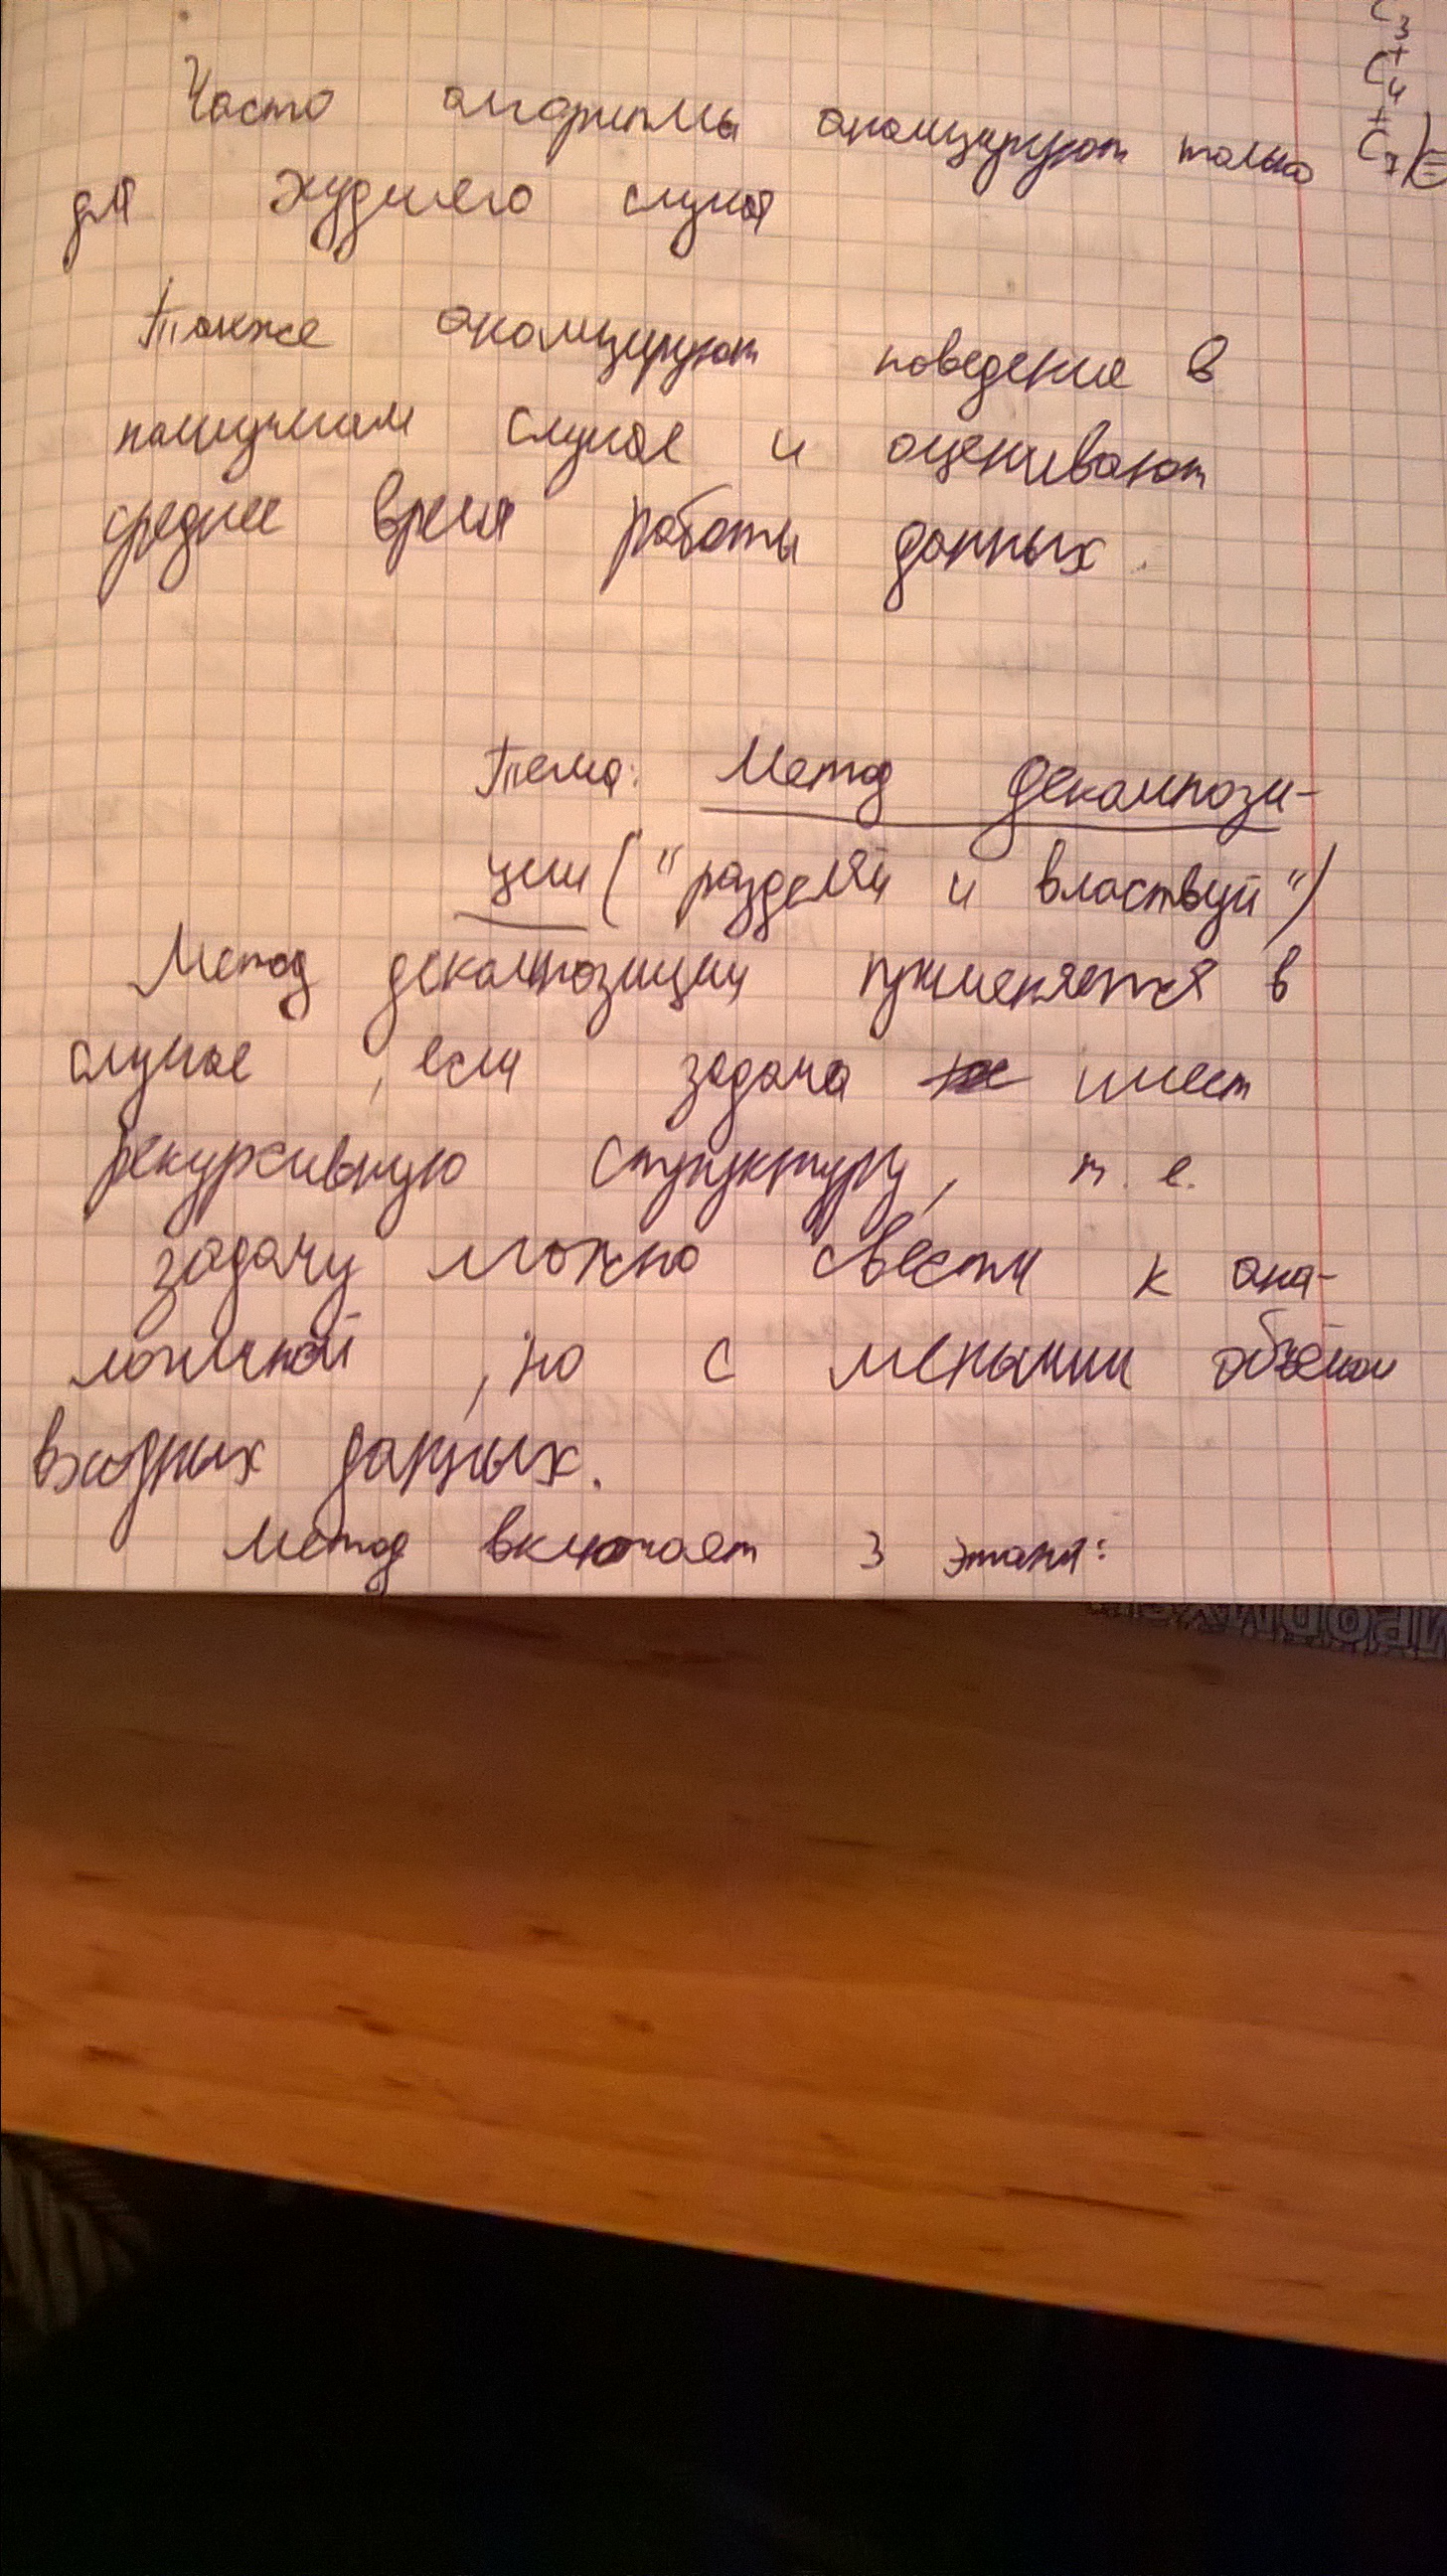 Часто алгоритмы анализируют только
для худшего случая
Также анализируют поведение в
наилучшем случае и оценивают
среднее время работы данных.
Тема: Метод декомпози-
ции ("разделяй и властвуй")
Метод декомпозиции применяется в
случае, если задача имеет
рекурсивную структуру, т. е.
задачу можно свести к ана-
логичной, но с меньшим объёмом
входных данных.
Метод включает 3 этапа:
C3
+
C4
+
C7)